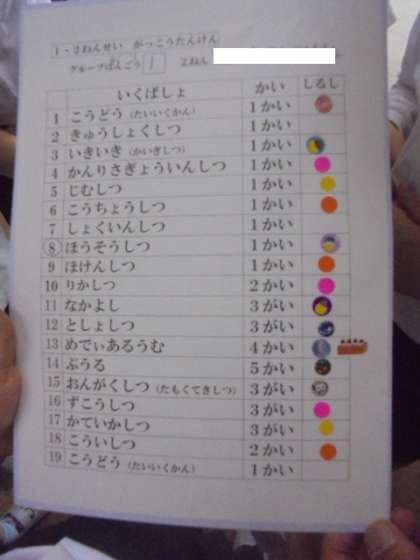 1・2ねんせい がっこうたんけん
グループばんごう 1 2ねん
いくばしょ かい しるし
1 こうどう(たいいくかん) 1かい
2 きゅうしょくしつ 1かい
3 いきいき(かいぎしつ) 1かい
4 かんりさぎょういんしつ 1かい
5 じむしつ 1かい
6 こうちょうしつ 1かい
7 しょくいんしつ 1かい
8 ほうそうしつ 1かい
9 ほけんしつ 1かい
10 りかしつ 2かい
11 なかよし 3がい
12 としょしつ 3がい
13 めでぃあるうむ 4かい
14 ぷうる 5かい
15 おんがくしつ(たもくてきしつ) 3がい
16 ずこうしつ 3がい
17 かていかしつ 3がい
18 こういしつ 2かい
19 こうどう(たいいくかん) 1かい